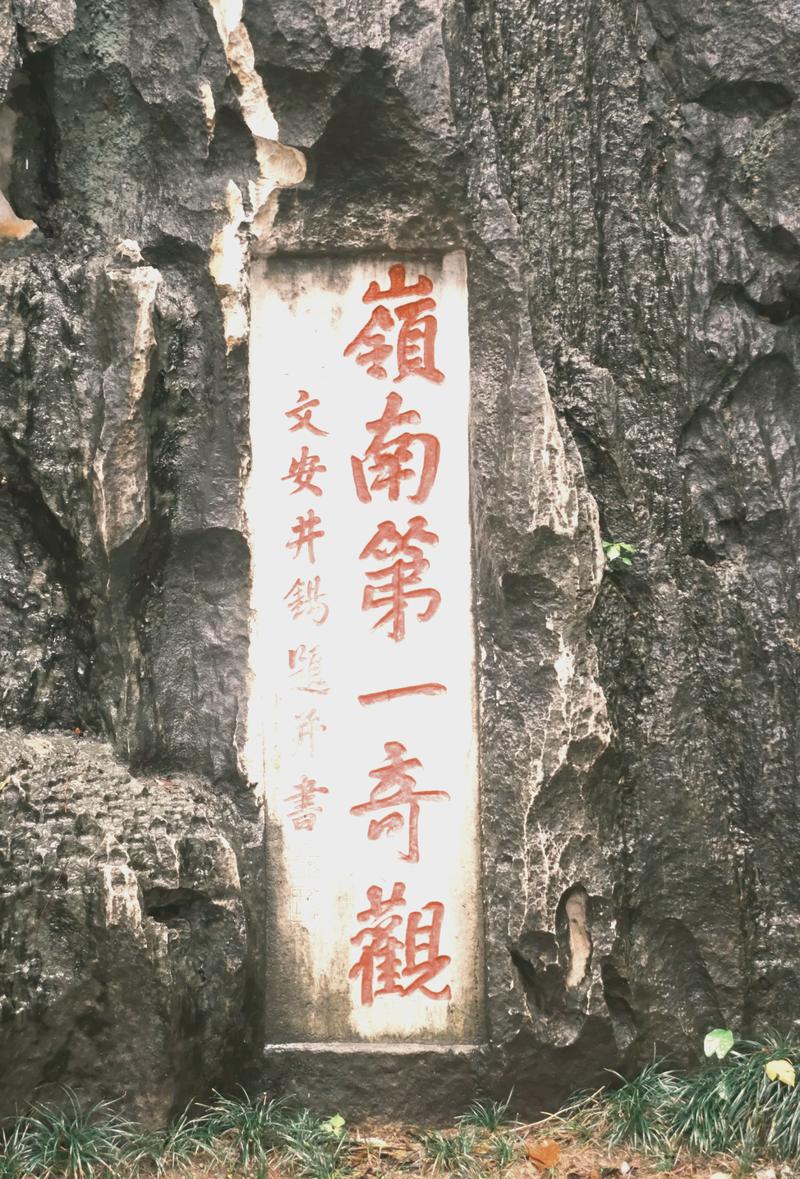 嶺南第一奇觀
文安井錫題并書